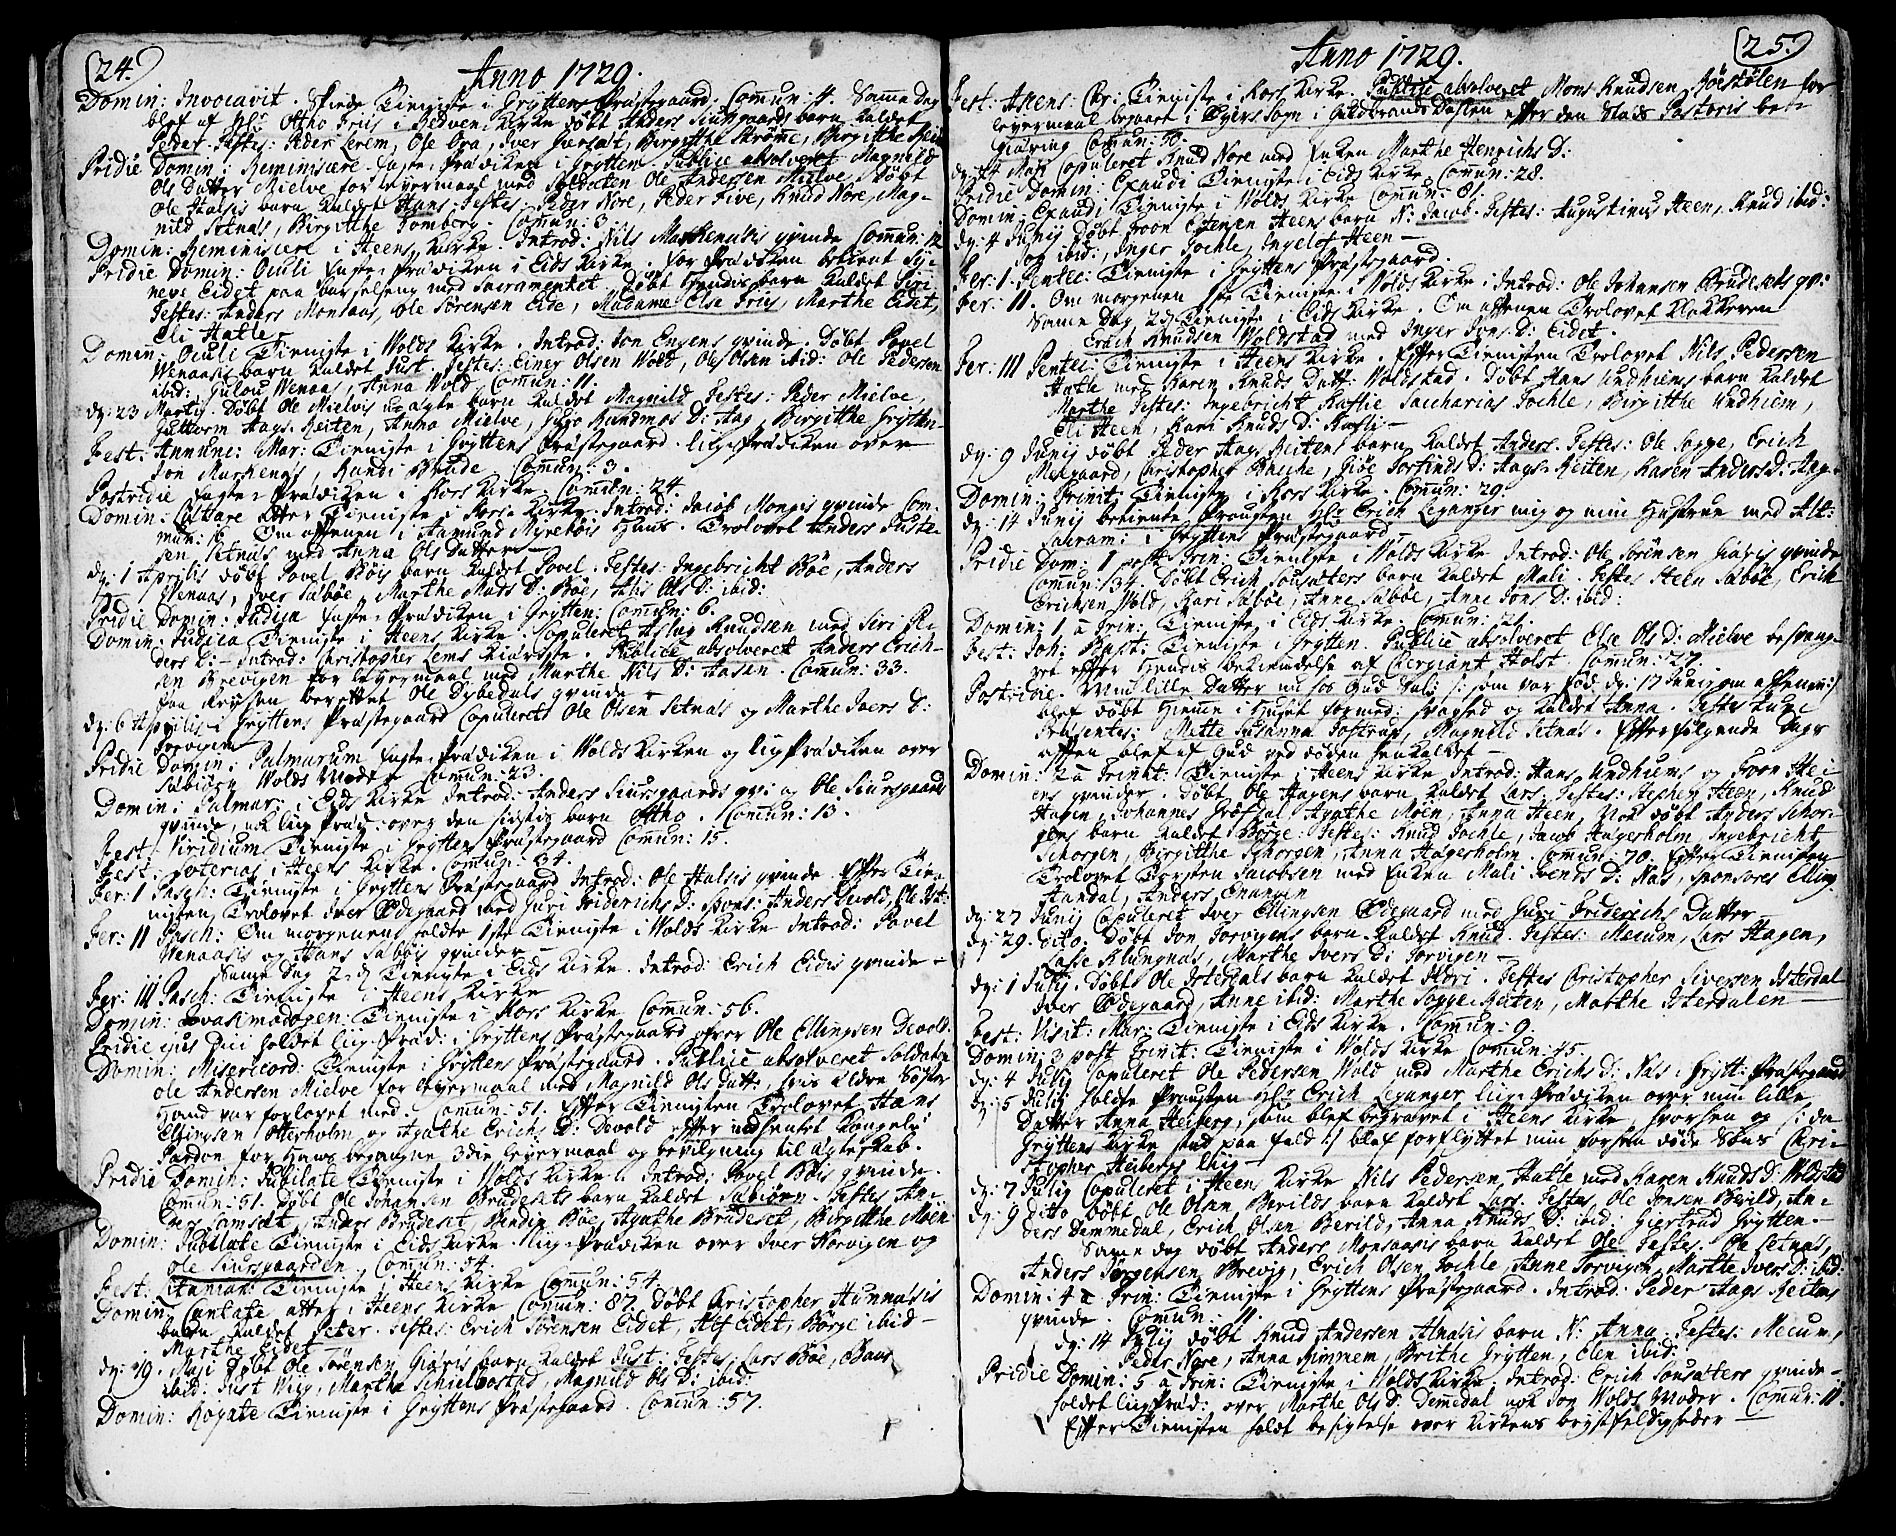 24.
Anno 1729.
Domin: Invocavit. Skede Tieniste i Gryttens Præstegaard, Comun: 4. Samme Dag
blef af Hr Otho Friis i Redven Kirke døbt Anders Siursgaards barn kaldet
Peder. Testes: Peder Lerem, Ole Ora, Iver Birgitthe Strømme, Birgitthe
Pridie Domin: Reminiscere faste Prædiken i Grytten. Publice absolveret Magnild
Ols Datter Mielve for Leyermaal med Soldaten Ole Andersen Mielve, Døbt
Ole Halsis barn kaldet Hans. Testes: Peder Nore, Peder Five, Knud Nore, Mag-
nild Setnæs, Birgitthe Romberg. Comun: 3.
Domin: Reminiscere i Heens Kirke. Introd: Nils Marstenæsis qvinde Comun: 12
Pridie Domin: Oculi faste Prædiken i Eids Kirke. For Prædiken betient Sy-
neve Eidet paa barselseng med Sacramentet. Døbt hendis barn kaldet Siri
Testes: Anders Monsaas, Ole Sørensen Eide, Madame Else Friis, Marthe Eidet,
Eli Hatle
Domin: Oculi Tieniste i Wolds Kirke. Introd: Jon Engens qvinde. Døbt Povel
Wenaasis barn kaldet Just. Testes: Einer Olsen Wold, Ole Olsen ibid: Ole Pedersen
ibid: Gulou Wenaas, Anna Wold, Comun: 11.
dg: 23 Martij. Døbt Ole Mielvis uægte barn kaldet Magnild Testes: Peder Mielve,
Guttorm Aags-Reiten, Anna Mielve, Guro Gundmos D: Aag, Birgitthe Grytten-
Fest: Annunc: Mar: Tieniste i Gryttens Præstegaard. liig-Prædiken over
Jon Marstenæs, Randi Brude. Comun: 3.
Postridie faste-Prædiken i Kors Kirke Comun: 24.
Domin: Lætare atter Tieniste i Kors-Kirke. Introd: Jacob Mongis qvinde Com-
mun: 6. Om aftenen i Aamund Myrebøis Huus. Trolovet Anders Juste-
sen Setnæs med Anna Ols Datter
dg: 1 Aprilis døbt Povel Bøis barn kaldet Povel. Testes: Ingebricht Bøe, Anders
Wenaas, Iver Sæbøe, Marthe Mats D: Bøe, Alis Ols D: ibid:
Pridie Domin: Judica faste-Prædiken i Grytten: Comun: 6.
Domin: Judica Tieniste i Heens Kirke. Copuleret Aslag Knudsen med Siri Pe-
ders D: - Introd: Christopher Lems Kiæreste. Publice absolveret Anders Erich-
sen Brevigen for Leyermaal med Marthe Nils D: Aasen. Comun: 33.
paa Reysen berettet Ole Dybedals qvinde
dg: 6 Aprilis i Gryttens Præstegaard Copuleret Ole Olsen Setnæs og Marthe Ivers D:
Torvigen
Pridie Domin: Palmarum faste-Prædiken i Wolds Kirken og liig Prædiken over
Sæbiørn Wolds Moder Comun: 23.
Domin: Palmar: i Eids Kirke Introd: Anders Siursgaards qvi: og Ole Siursgaards
qvinde, nok liig Præd: over den sidstes barn Otho. Comun: 13.
Fest: Viridium Tieniste i Grytten Præstegaard Comun: 15.
Fest: Soterias i Heens Kirke. Comun: 34.
Fer: 1 Pasch: Tieniste i Gryttens Præstegaard Introd: Ole Halsis qvinde. Efter Tie-
nisten, Trolovet Iver Ødegaard med Guri Friderichs D: Spons: Anders Devold, Ole
Fer: II Pasch: Om morgenen holdte 1ste Tieniste i Wolds Kirke Introd: Povel
Wenaasis og Hans Sæbøis qvinder
Samme Dag 2den Tieniste i Eids Kirke. Introd: Erich Eidis qvinde
Fer: III Pasch: Tieniste i Heens Kirke
Domin: Qvasimodogen: Tieniste i Kors Kirke Comun: 56.
Pridie ejus Diei holdet liig-Præd: i Gryttens Præstegaard over Ole Ellingsen Devold.
Domin: Misericord: Tieniste i Gryttens Præstegaard. Publice absolveret Soldaten
Ole Andersen Mielve for Leyermaal med Magnild Ols Datt: hvis ældre Søster
Hand var forlovet med. Comun: 51. Efter Tienisten Trolovet Hans
Ellingsen Otterholm og Agathe Erichs D: Devold efter indhentet kongelig
Pardon for Hans begangne 3die Leyermaal og bevilgning til Ægteskab.
Pridie Domin: Jubilate Tieniste i Wolds Kirke. Introd: Povel Bøis qvinde.
Comun: 51. Døbt Ole Johansen Brudesets barn kaldet Sæbiørn. Testes An-
ders Samset, Anders Brudeset, Bendix Bøe, Agathe Brudeset, Birgitthe Moen
Domin: Jubilate Tieniste i Eids Kirke liig-Prædiken over Iver Norvigen og
Ole Siursgaarden. Comun: 54.
Fest: Litaniar: Tieniste i Heens Kirke Comun: 54.
Domin: Cantate atter i Heens Kirke Comun: 87. Døbt Christopher Hunnæsis
barn kaldet Peter. Testes: Erich Sørensen Eidet, Alf Eidet, Børge ibid-
Marthe Eidet
dg: 19. Maji Døbt Ole Sørensen Giæris barn kaldet Just. Testes, Lars Bøe, Baar
ibid: Just Wiig, Marthe Schielbostad, Magnild Ols D: ibid:
Domin: Rogate Tieniste i Gryttens Præstegaard. Comun: 57.
25.
Anno 1729.
Fest: Ascens: Chr: Tieniste i Kors Kirke. Publice absolveret Mons Knudsen Høistølen for
Leyermaal begaaet i Øyers Sogn i Guldbrands Dalen efter den Stæds Pastoris be-
giæring Comun: 50.
dg: 24 Maji Copuleret Knud Nore med Enken Marthe Henrichs D:
Pridie Domin: Exaudi Tieniste i Eids Kirke, Comun: 28.
Domin: Exaudi Tieniste i Wolds Kirke Comun: 81.
dg: 4 Junij Døbt Joen Estensen Heens barn N: Jacob. Testes: Augustinus Heen, Knud ibid:
og ibid: Inger Sochle, Ingelof Heen
Fer: 1 Pentec: Tieniste i Gryttens Præstegaard.
Fer: II. Om morgenen 1ste Tieniste i Wolds Kirke. Introd: Ole Johansen Brudesets qv:
Samme Dag 2den Tieniste i Eids Kirke. Om aftenen Trolovet Klokkeren
Erich Knudsen Woldstad med Inger Jons D: Eidet.
Fer: III Pentec: Tieniste i Heens Kirke. Efter Tienisten Trolovet Nils Pedersen
Hatle med Karen Knuds Datt: Woldstad. Døbt Hans Undhiems barn kaldet
Marthe Testes: Ingebricht Kaflie Zacharias Sochle, Birgitthe Undhiem,
Eli Heen, Kari Knuds D: Kafli
dg: 9 Junij døbt Peder Aags-Reitens barn kaldet Anders. Testes: Ole Sogge, Erich
Melgaard, Christopher Bheche, Giøe Torfinds D: Aags-Reiten, Karen Anders D: Aag
Domin: Trinit. Tieniste i Kors Kirke. Comun: 29.
dg: 14 Junij betiente Prousten Hr Erich Leganger mig og min Hustrue med Alt:
Sacram: i Gryttens Præstegaard
Pridie Dom: 1 post Trin: Tieniste i Wolds Kirke Introd: Ole Sørensen Giæris qvinde
Comun: 34. Døbt Erich Sousæters barn kaldet Mali. Testes Steen Sæbøe, Erich
Erichsen Wold, Kari Sæbøe, Anne Sæbøe, Anne Jons D: ibid:
Domin: 1 a Trin: Tieniste i Eids Kirke. Comun: 21.
Fest: Joh: Bapt: Tieniste i Grytten. Publice absolveret Else Ols D: Mielve besvang-
ret efter hendis bekiendelse af Sergiant Holst. Comun: 27.
Postridie. Min lille Datter nu hos Gud Sal: (: som var fød dg: 17 Junij om aftenen :)
blef døbt hiemme i Huset formed: svaghed og kaldet Anna. Testes tunc
Præsentes: Mette Susanna Tostrup, Magnild Setnæs. Efterfølgende Dags
aften blef af Gud ved døden henkaldet
Domin: 2 a Trinit: Tieniste i Heens Kirke Introd: Hans Undhiems og Joon He-
ens qvinder. Døbt Ole Hagens barn kaldet Lars. Testes: Stephen Heen, Knud
Hagen, Johannes Grøfdal, Agathe Møen, Anna Heen, Nok døbt Anders Schor-
gens barn kaldet Børge: Testes: Knud Sochle, Jacob Hagerholm, Ingebricht
Schorgen, Birgitthe Schorgen, Anna Hagerholm. Comun: 70. Efter Tienisten
Trolovet Torsten Jacobsen med Enken Mali Svends D: Næs, Sponsores Elling
Handal, Anders Enangen
dg: 27 Junij Copuleret Iver Ellingsen Ødegaard med Guri Friderichs Datter
dg: 29. dito. Døbt Jon Torvigens barn kaldet Knud. Testes: Mecum, Lars Hagen,
Lasse Klungnæs, Marthe Ivers D: Torvigen
dg: 1 Julij. Døbt Ole Isterdals barn kaldet Mari. Testes Cristopher Siversen Isterdal
Iver Ødegaard, Anne ibid: Marthe Sogge-Reiten, Marthe Isterdalen
Fest: Visit: Mar: Tieniste i Eids Kirke. Comun: 9.
Domin: 3 post Trinit: Tieniste i Wolds Kirke Comun: 45.
dg: 4 Julij Copuleret Ole Pedersen Wold med Marthe Erichs D: Næs i Grytt: Præstegaard
dg: 5 Julij holdte Prousten Hr Erich Leganger liig-Prædiken over min lille
Datter Anna Heiberg, som blef begravet i Heens Kirke, hvorhen og (: da
Gryttens Kirke stod paa fald :) blef forflyttet min forhen døde Søns Chri-
stopher Heibergs liig
dg: 7 Julij Copuleret i Heens Kirke Nils Pedersen Hatle med Karen Knuds D: Woldstad
dg: 9 ditto døbt Ole Olsen Berilds barn kaldet Lars. Testes, Ole Jonsen Berild, An-
ders Dammedal, Erich Olsen Berild, Anna Knuds D: ibid: Giertrud Grytten.
Samme dag døbt Anders Monsaasis barn kaldet Ole Testes: Ole Setnæs,
Anders Jørgensen, Brevig, Erich Olsen Sochle, Anne Torvigen, Marthe Ivers D: ibid:
Domin: 4 a Trin: Tieniste i Gryttens Præstegaard. Introd: Peder Aags Reitens
qvinde. Comun: 11.
dg: 14 Julij døbt Knud Andersen Alnæsis barn N: Anna. Testes: Mecum,
Peder Nore, Anna Rimmem, Brithe Grytten, Elen ibid:
Pridie Domin: 5 a Trin: Tieniste i Wolds Kirke. Introd: Erich Sousæters qvinde
holdet liig Præd: over Marthe Ols D: Demedal nok Jon Wolds Moder. Comun: 11.
Efter Tienisten holdt besigtelse over Kirkens brøstfeldigheder